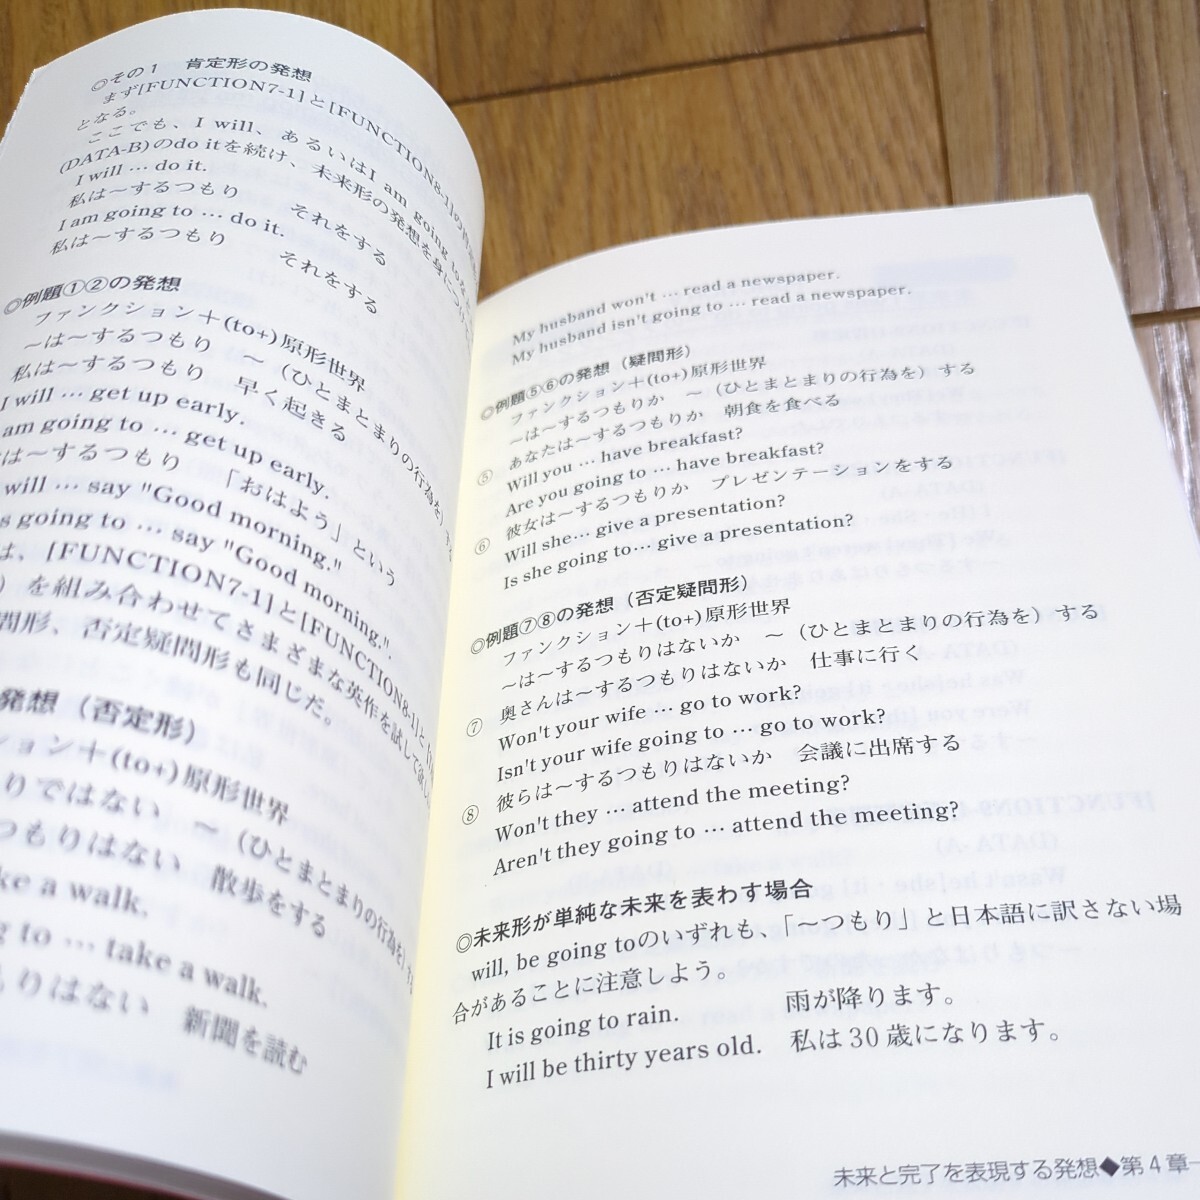 ◎その1 肯定形の発想
まず[FUNCTION7-1]と[FUNCTION8-1]の
となる。
ここでも、I will、あるいはI am going to
(DATA-B)のdo itを続け、未来形の発想を身につけ
I will … do it.
私は～するつもり それをする
I am going to … do it.
私は～するつもり それをする
◎例題①②の発想
ファンクション＋(to+)原形世界
～は～するつもり ～（ひとまとまりの行為を）す
私は～するつもり 早く起きる
I will … get up early.
am going to … get up early.
は～するつもり 「おはよう」という
will … say "Good morning."
s going to … say "Good morning.".
は、[FUNCTION7-1]と[FUNCTION8-1]と
）を組み合わせてさまざまな英作を試して
問形、否定疑問形も同じだ。
発想（否定形）
ション＋(to+)原形世界
りではない ～（ひとまとまりの行為を）す
つもりはない 散歩をする
ke a walk.
g to … take a walk.
もりはない 新聞を読む
My husband won't … read a newspaper.
My husband isn't going to … read a newspaper.
◎例題⑤⑥の発想（疑問形）
ファンクション＋(to+)原形世界
～は～するつもりか ～（ひとまとまりの行為を）する
⑤ あなたは～するつもりか 朝食を食べる
Will you … have breakfast?
Are you going to … have breakfast?
⑥ 彼女は～するつもりか プレゼンテーションをする
Will she… give a presentation?
Is she going to… give a presentation?
◎例題⑦⑧の発想（否定疑問形）
ファンクション＋(to+)原形世界
～は～するつもりはないか ～（ひとまとまりの行為を）する
⑦ 奥さんは～するつもりはないか 仕事に行く
Won't your wife … go to work?
Isn't your wife going to … go to work?
⑧ 彼らは～するつもりはないか 会議に出席する
Won't they … attend the meeting?
Aren't they going to … attend the meeting?
◎未来形が単純な未来を表わす場合
will, be going toのいずれも、「～つもり」と日本語に訳さない場
合があることに注意しよう。
It is going to rain. 雨が降ります。
I will be thirty years old. 私は30歳になります。
未来と完了を表現する発想◆第4章